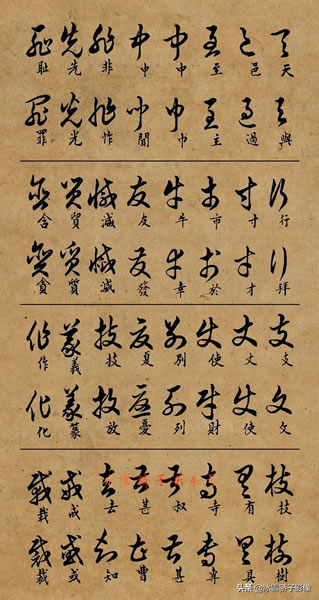 天 邑 至 中 中 非 先 耻
與 過 主 巾 間 怍 光 罪
行 寸 市 牛 友 減 貿 含
拜 才 於 幸 發 滅 質 貪
支 丈 使 別 夏 技 義 作
文 使 財 列 憂 放 篆 化
枝 有 寺 叔 甚 去 戒 栽
樹 具 專 甚 曹 知 或 裁
头条